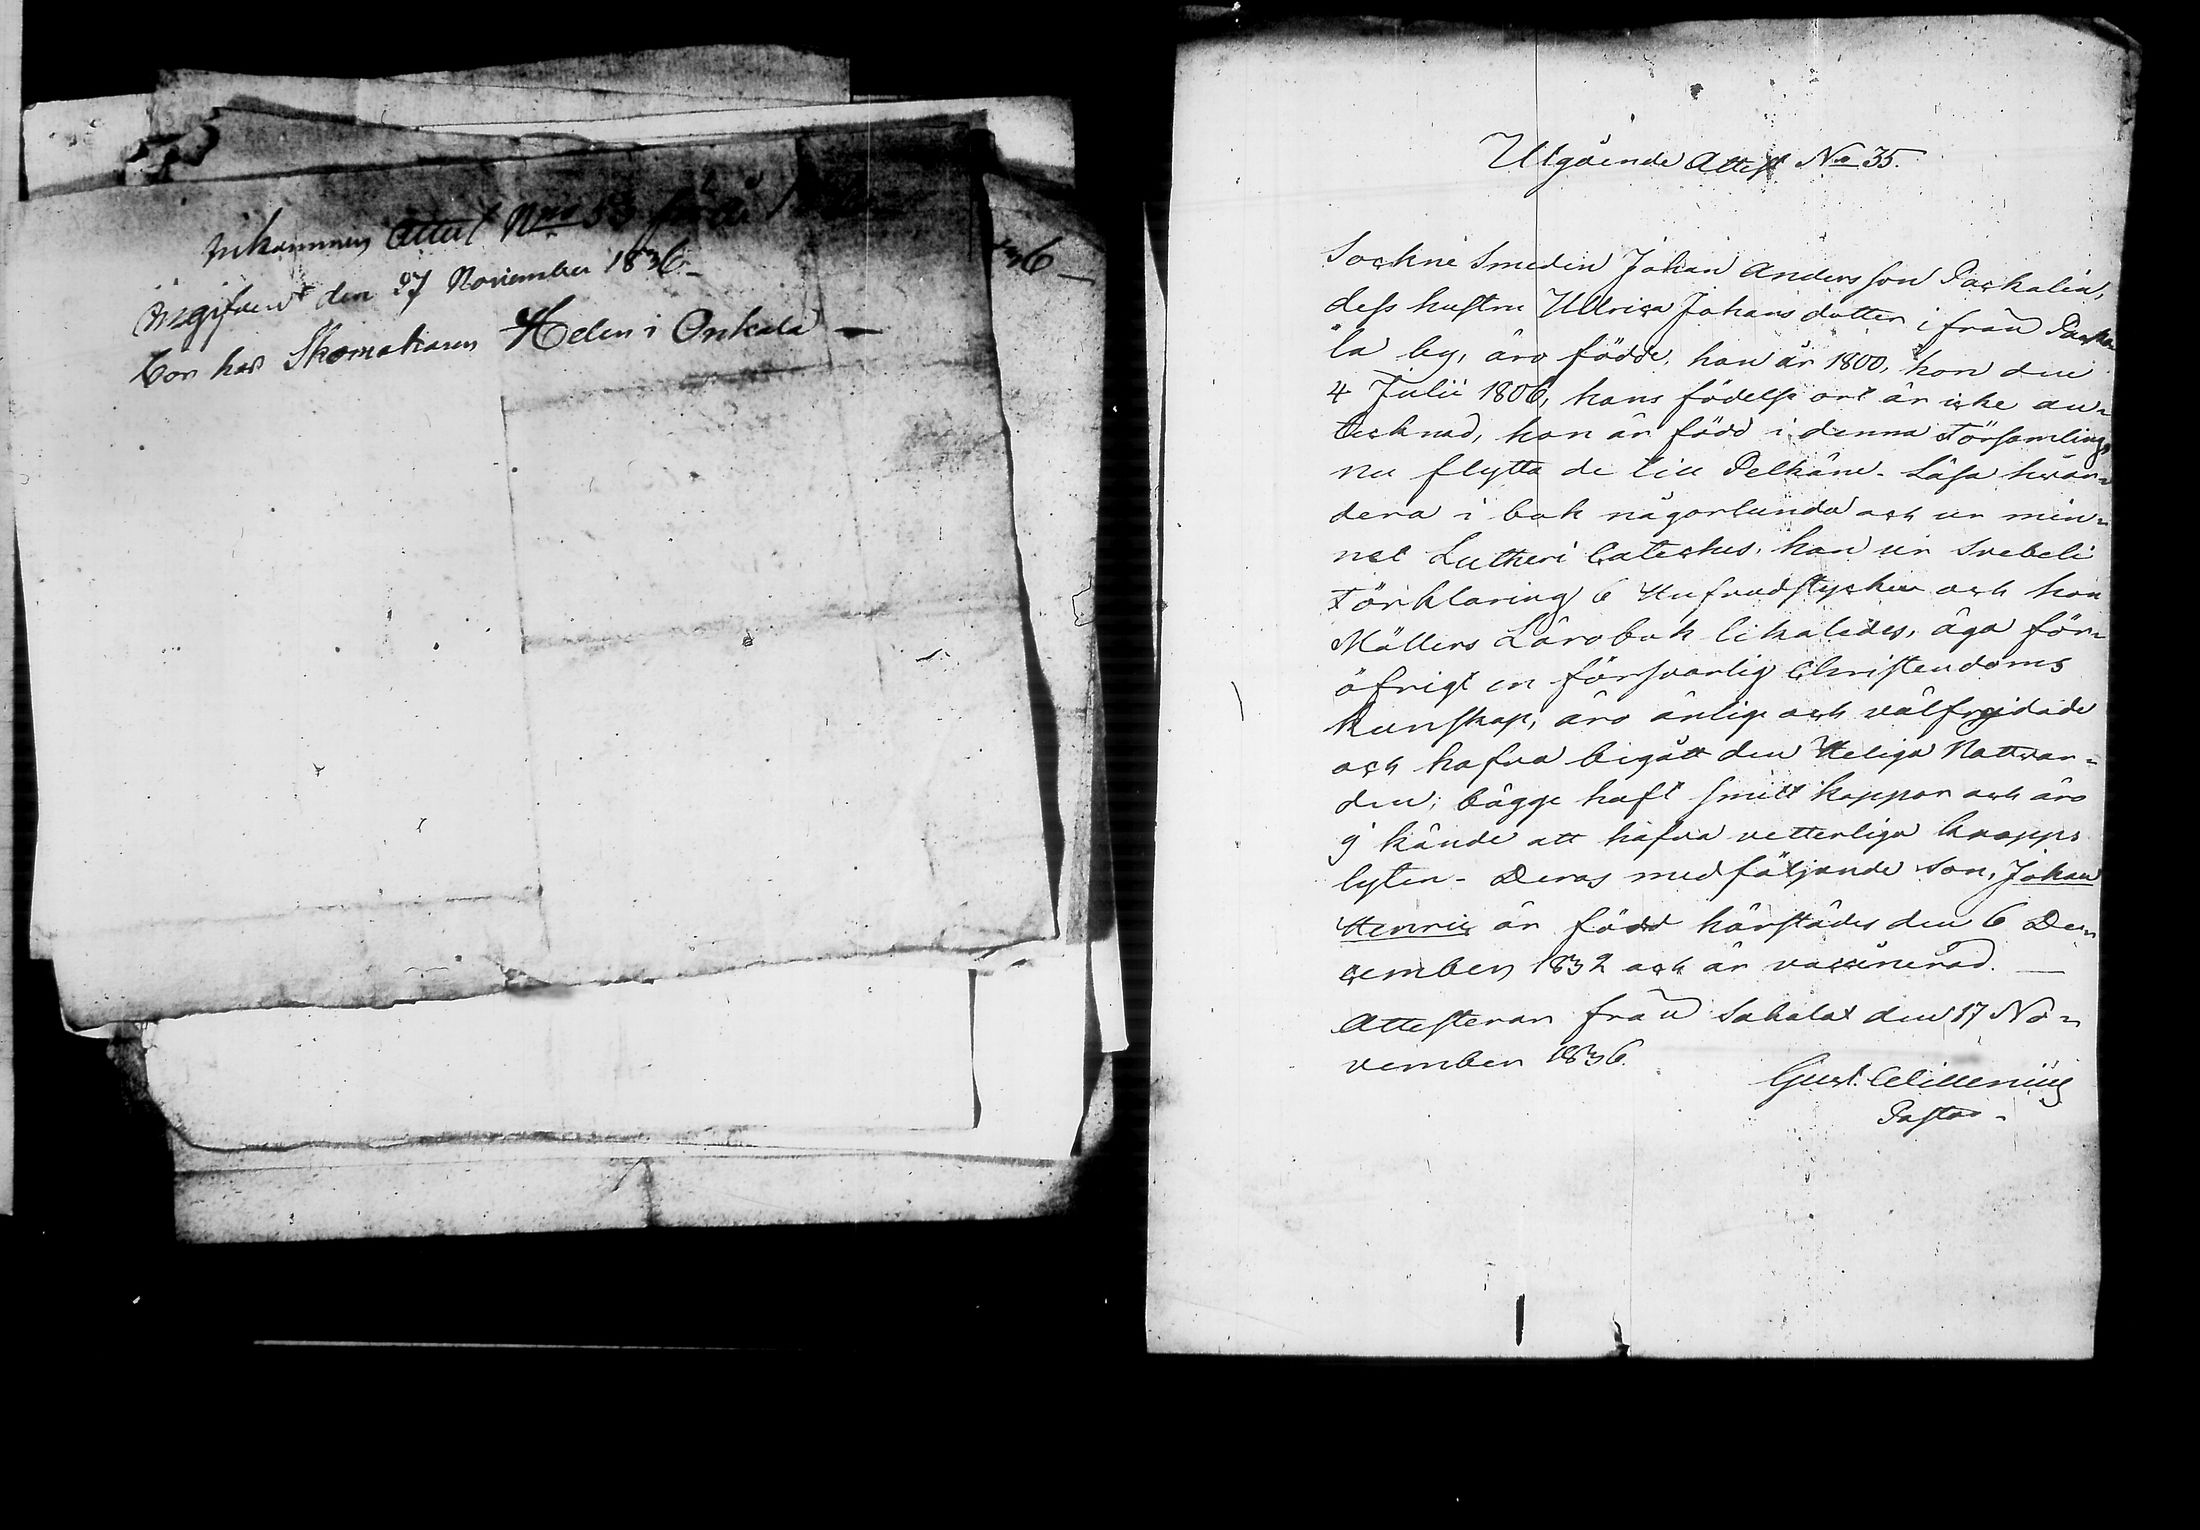 Inkommen Attest Nro 53 för år
Ingifvent den 27 November 1836.
Bor hos Skomakaren Helen i Onkala
36
Utgående Attest No 35.
Sockne Smeden Johan Andersson Paskalin,
dess hustru Ulrica Johans dotter ifrån Paska
la by, äro födde, han år 1800, hon den
4 Julii 1806, hans födelse ort är icke an-
tecknad, hon är född i denna Församling,
nu flytta de till Pelkäne. Läsa hvar-
dera i bok någorlunda och ur min-
net Lutheri Cateches, han ur Svebeli
Förklaring 6 Hufvudstycken och hon
Möllers Lärobok likaledes, äga för-
öfrigt en försvarlig Christendoms
kunskap, äro ärlige och välfrejdade
och hafva begått den Heliga Nattvar-
den, bägge haft smitt koppor och äro
ej kände att hafva vetterliga kropps
lyten. Deras medföljande son, Johan
Henric är född härstädes den 6 De-
cember 1832 och är vaccinerad.
Attesterar från Sahalax den 17 No-
vember 1836.
Gust.
Pastor.